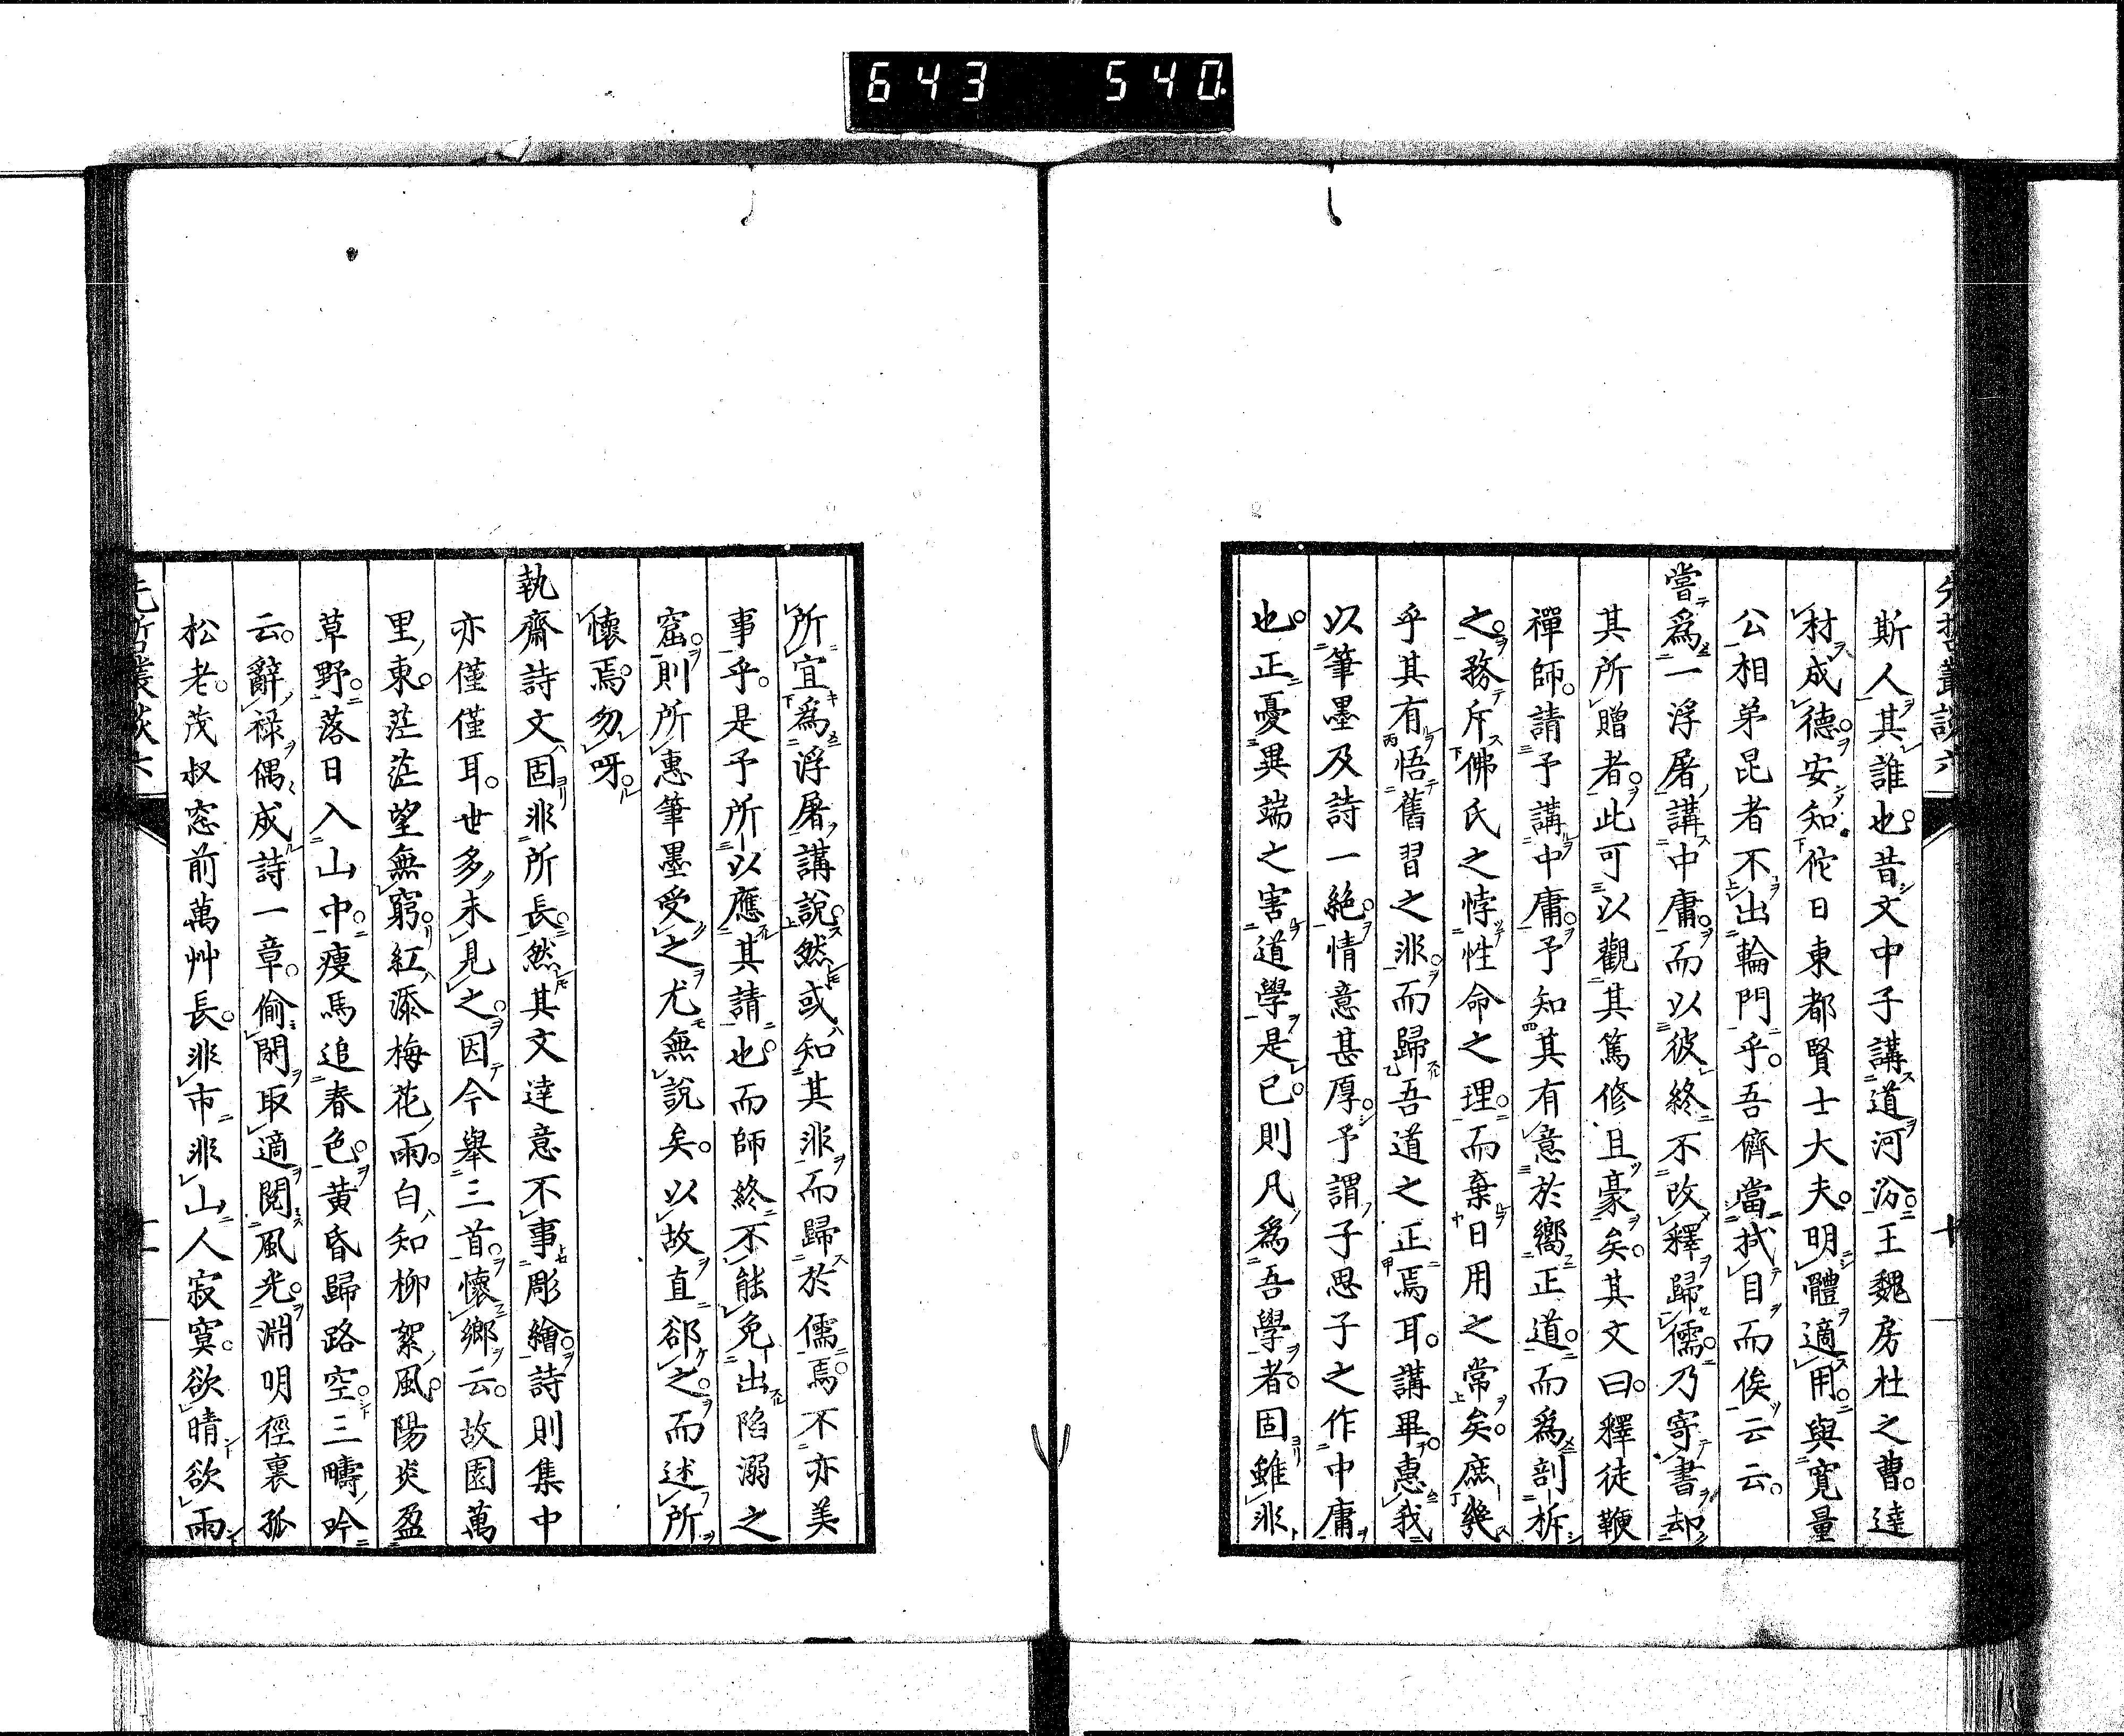 643 540
先哲叢談六 十
斯人其誰也昔文中子講道河汾王魏房杜之曹達
材成德安知佗日東都賢士大夫明體適用與寬量
公相弟昆者不出輪門乎吾儕當拭目而俟云云
嘗爲一浮屠講中庸而以彼終不改釋歸儒乃寄書却
其所贈者此可以觀其篤修且豪矣其文曰釋徒鞭
禪師請予講中庸予知其有意於嚮正道而爲剖析
之務斥佛氏之悖性命之理而棄日用之常矣庶幾
乎其有悟舊習之非而歸吾道之正焉耳講畢惠我
以筆墨及詩一絶情意甚厚予謂子思子之作中庸
也正憂異端之害道學是已則凡爲吾學者固雖非
所宜爲浮屠講說然或知其非而歸於儒焉不亦美
事乎是予所以應其請也而師終不能免出陷溺之
窟則所惠筆墨受之尤無說矣以故直郤之而述所
懷焉勿呀
執齋詩文固非所長然其文達意不事彫繪詩則集中
亦僅僅耳世多未見之因今舉三首懷鄉云故園萬
里東茫茫望無窮紅添梅花雨白知柳絮風陽炎盈
草野落日入山中瘦馬追春色黃昏歸路空三疇吟
云辭祿偶成詩一章偷閑取適閱風光淵明徑裏孤
松老茂叔窓前萬艸長非市非山人寂寞欲晴欲雨
先哲叢談六